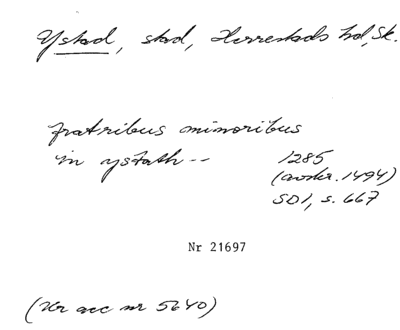 Ystad, stad, Herrestads hd, Sk.
fratribus minoribus
in ystath -- 1285
(avskr. 1494)
SD1, s. 667
Nr 21697
(Ur acc nr 5640)